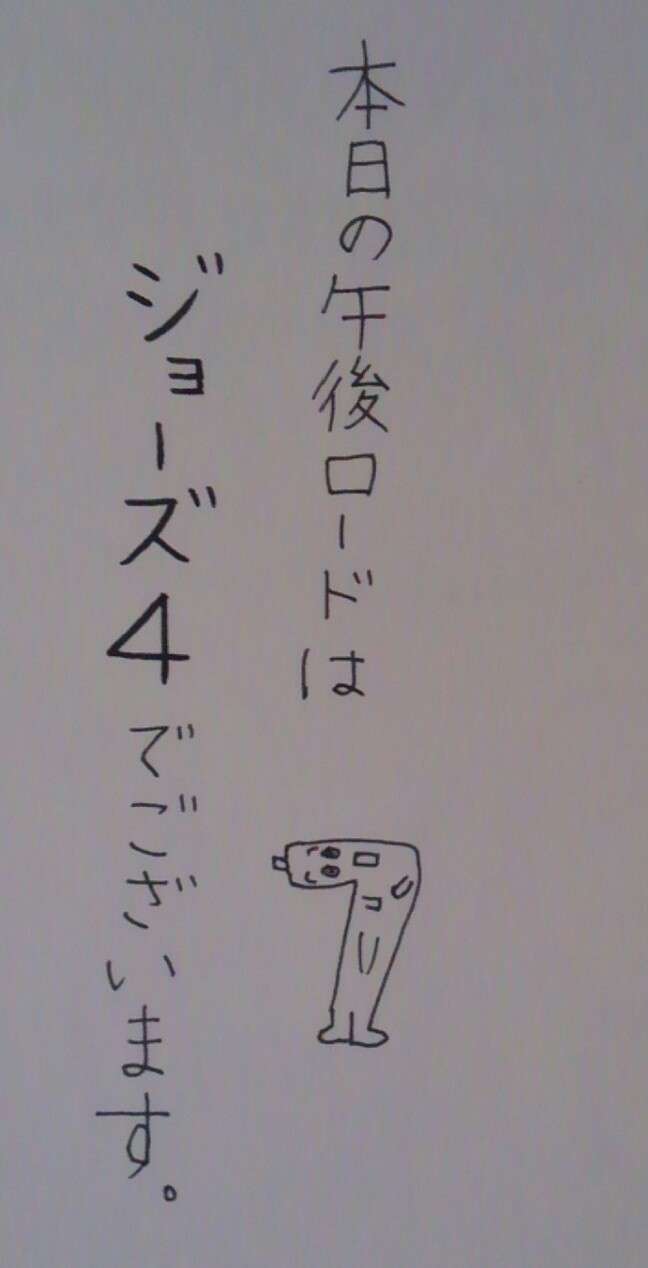 本日の午後ロードは
ジョーズ4でございます。